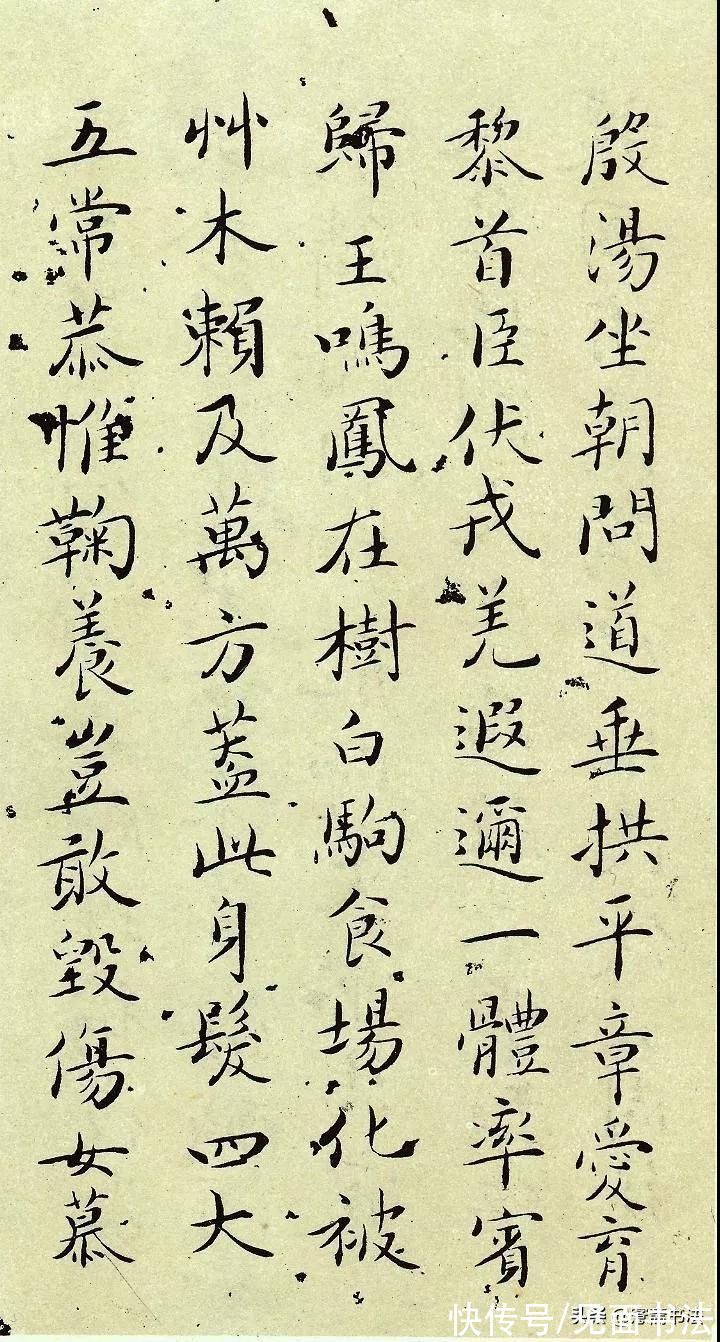 殷湯坐朝問道垂拱平章愛育
黎首臣伏戎羌遐邇一體率賓
歸王鳴鳳在樹白駒食場化被
艸木賴及萬方蓋此身髮四大
五常恭惟鞠養豈敢毀傷女慕
快传号/见面书法